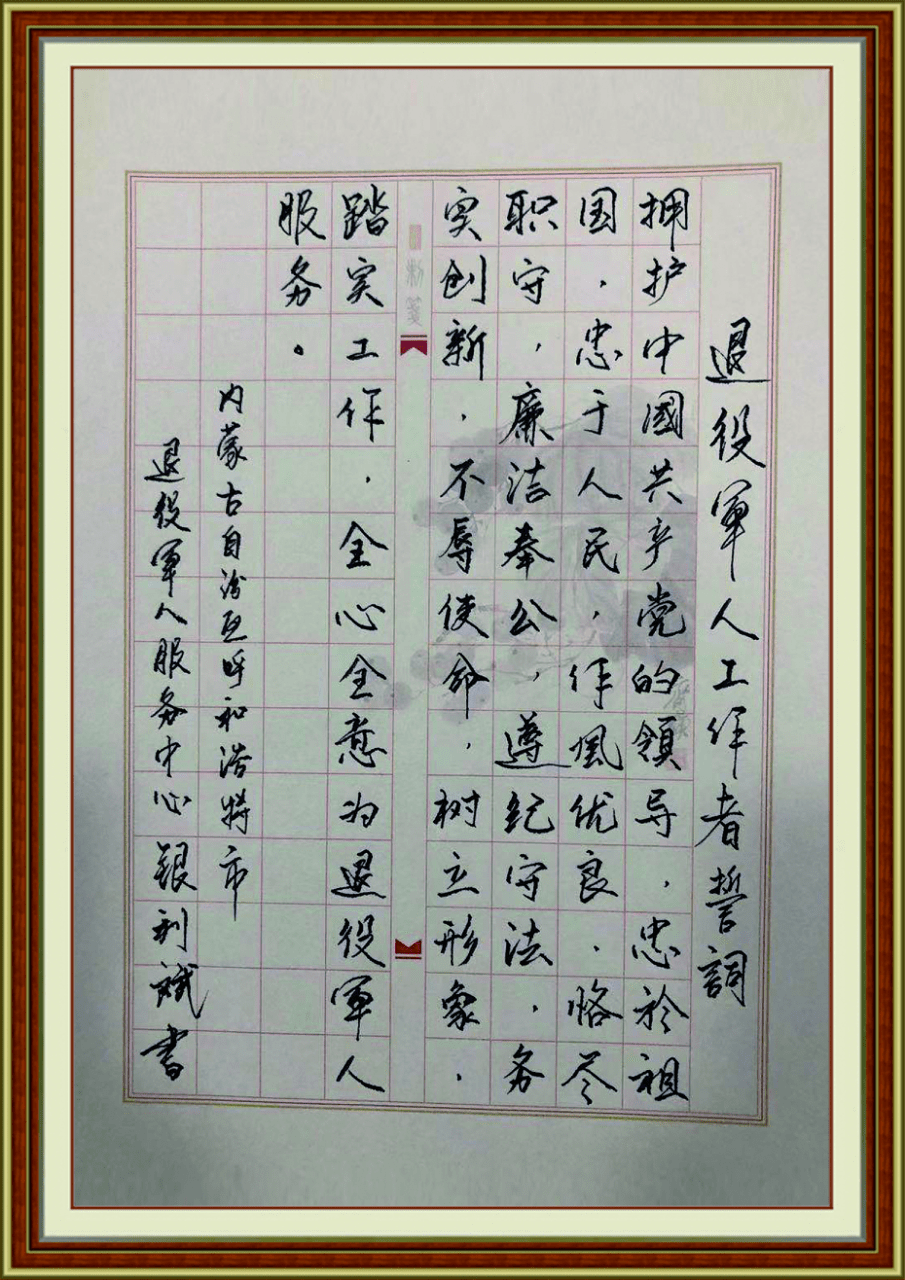 退役軍人工作者誓詞
拥护中國共产党的領导，忠於祖
国，忠于人民，作風优良，恪尽
职守，廉洁奉公，遵纪守法，务
实创新，不辱使命，树立形象，
踏实工作，全心全意为退役軍人
服务。
内蒙古自治区呼和浩特市
退役軍人服务中心 银利斌書